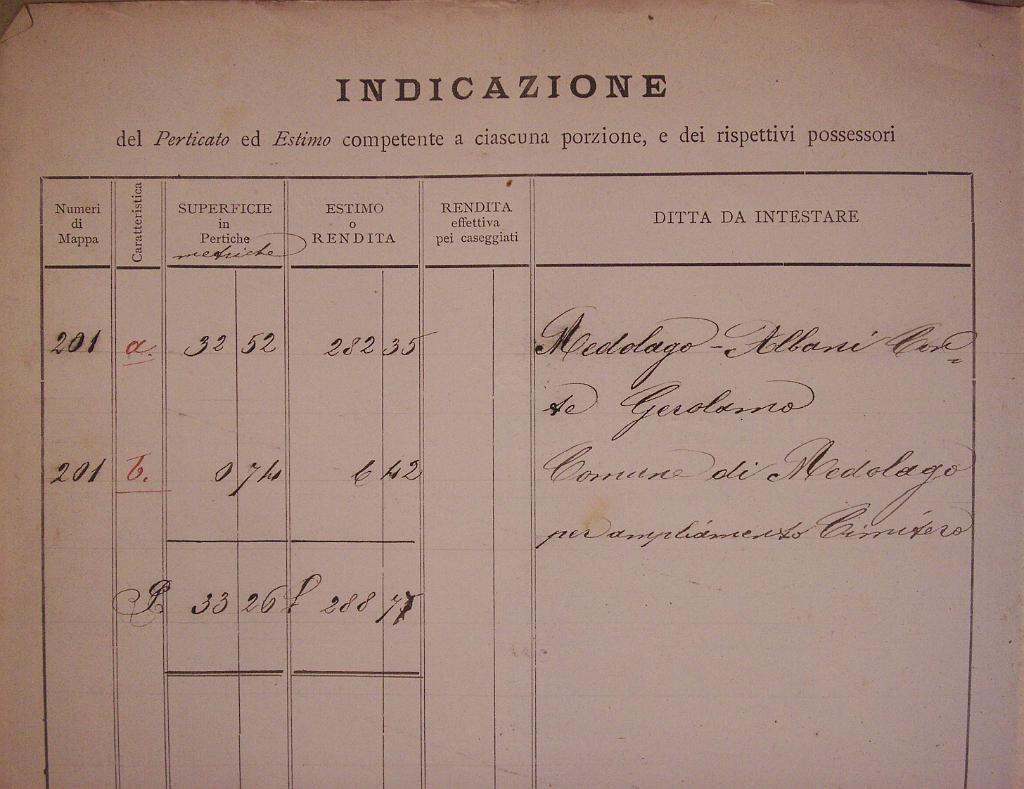 INDICAZIONE
del Perticato ed Estimo competente a ciascuna porzione, e dei rispettivi possessori
Numeri di Mappa
Caratteristica
SUPERFICIE in Pertiche metriche
ESTIMO o RENDITA
RENDITA effettiva pei caseggiati
DITTA DA INTESTARE
201 a. 32 52 282 35 Medolago-Albani Con=
te Gerolamo
201 b. 0 74 6 42 Comune di Medolago
per ampliamento Cimitero
P. 33 26 £ 288 77